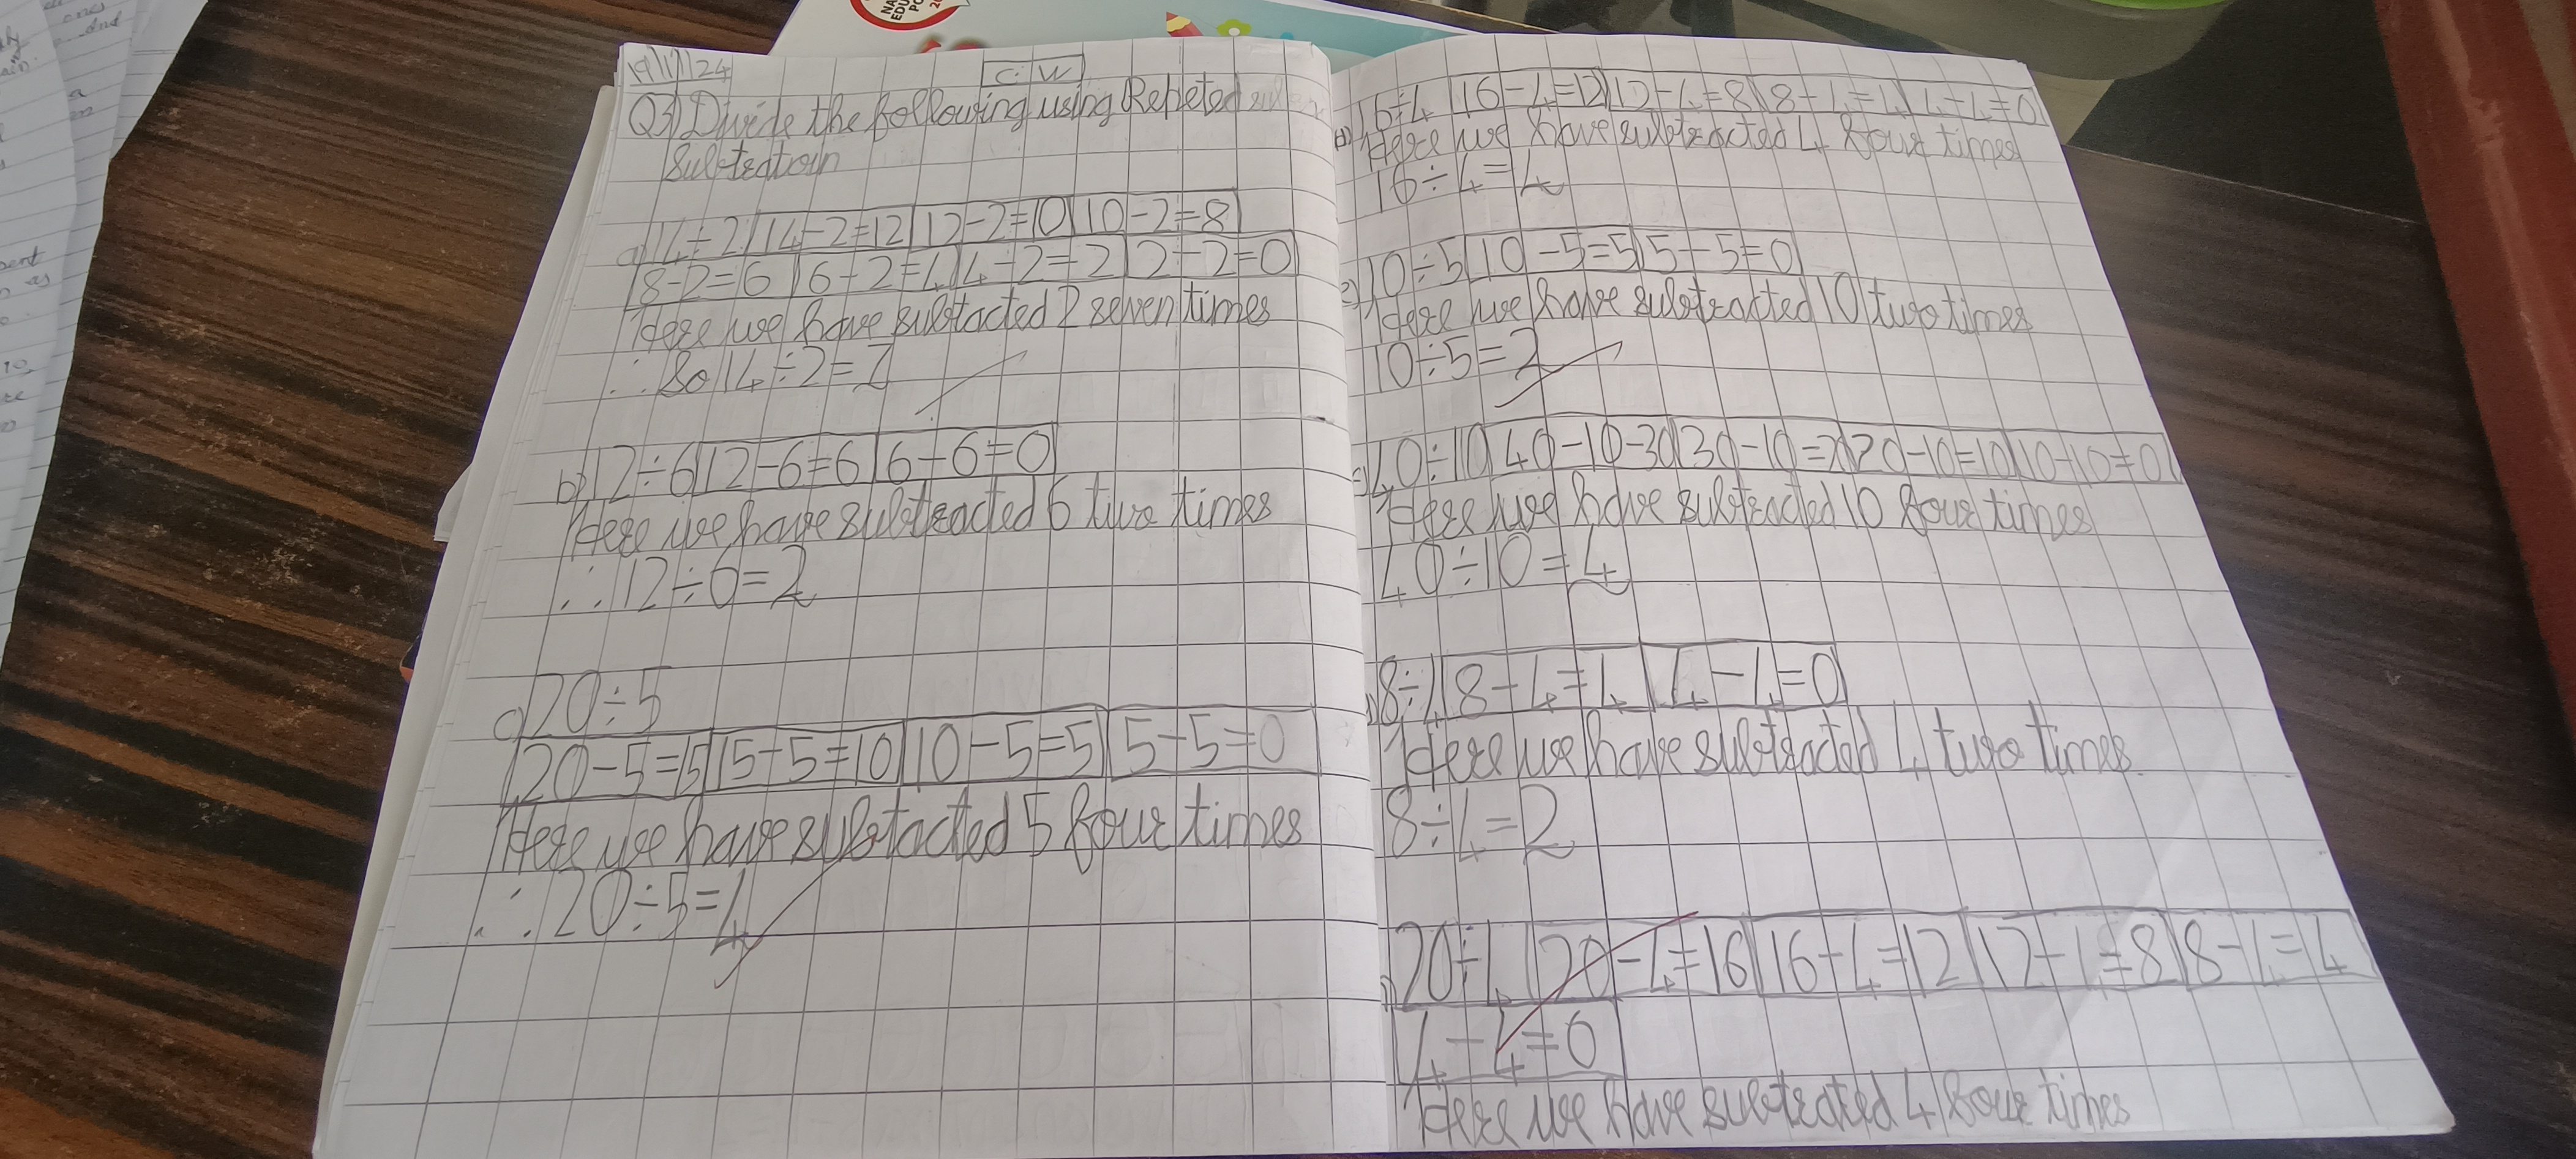 19/11/24
C.W
Q3) Divide the following using Repeted
subtedtion
a) 14÷2 | 14-2=12 | 12-2=10 | 10-2=8
8-2=6 | 6-2=4 | 4-2=2 | 2-2=0
Here we have subtacted 2 seven times
∴ So 14÷2=7
b) 12÷6 | 12-6=6 | 6-6=0
Here we have subtracted 6 two times
∴ 12÷6=2
c) 20÷5
20-5=15 | 15-5=10 | 10-5=5 | 5-5=0
Here we have subtacted 5 four times
∴ 20÷5=4
d) 16÷4 | 16-4=12 | 12-4=8 | 8-4=4 | 4-4=0
Here we have subtracted 4 four times
16÷4=4
e) 10÷5 | 10-5=5 | 5-5=0
Here we have subtracted 10 two times
10÷5=2
40÷10 | 40-10-30 | 30-10=20 | 20-10=10 | 10-10=0
Here we have subtracted 10 four times
40÷10=4
8÷4 | 8-4=4 | 4-4=0
Here we have subtracted 4 two times
8÷4=2
20÷4 | 20-4=16 | 16-4=12 | 12-4=8 | 8-4=4
4-4=0
Here we have subtracted 4 four times